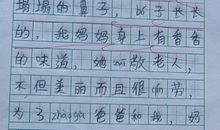 塌塌的鼻子，    子长长
的，我妈妈身上有香香
的味道，她zūn敬老人，
不但美丽而且很向劳，
为了zhàogù爸爸和我，妈